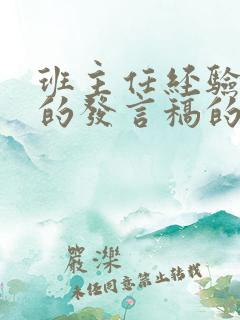 班主任经验
的發言稿的
嚴濼
未任同意禁止转载